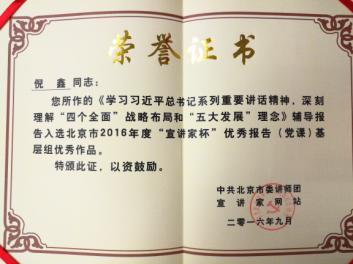 荣誉证书
倪 鑫 同志：
您所作的《学习习近平总书记系列重要讲话精神，深刻
理解“四个全面”战略布局和“五大发展”理念》辅导报
告入选北京市2016年度“宣讲家杯”优秀报告（党课）基
层组优秀作品。
特颁此证，以资鼓励。
中共北京市委讲师团
宣讲家网站
二零一六年九月